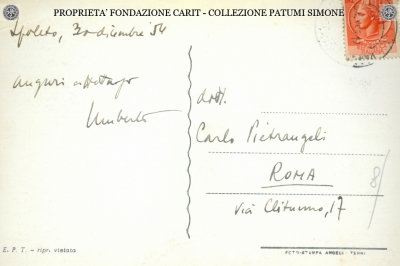 PROPRIETA' FONDAZIONE CARIT - COLLEZIONE PATUMI SIMONE
Spoleto, 30 dicembre 54
auguri
Umberto
dott.
Carlo Pietrangeli
ROMA
Via Clitunno, 17
8/
E. P. T. - ripr. vietata
FOTO-STAMPA ANGELI - TERNI